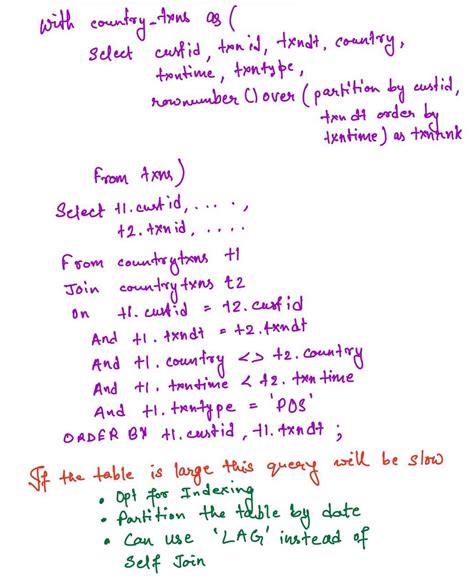 With country_txns as (
Select custid, txnid, txndt, country,
txntime, txntype,
rownumber () over (partition by custid,
txndt order by
txntime) as txnrnk
From txns)
Select t1.custid, . . . . ,
t2.txnid, . . . .
From countrytxns t1
Join countrytxns t2
on t1.custid = t2.custid
And t1.txndt = t2.txndt
And t1.country <> t2.country
And t1.txntime < t2.txntime
And t1.txntype = 'POS'
ORDER BY t1.custid, t1.txndt ;
If the table is large this query will be slow
• Opt for Indexing
• Partition the table by date
• Can use 'LAG' instead of
Self Join